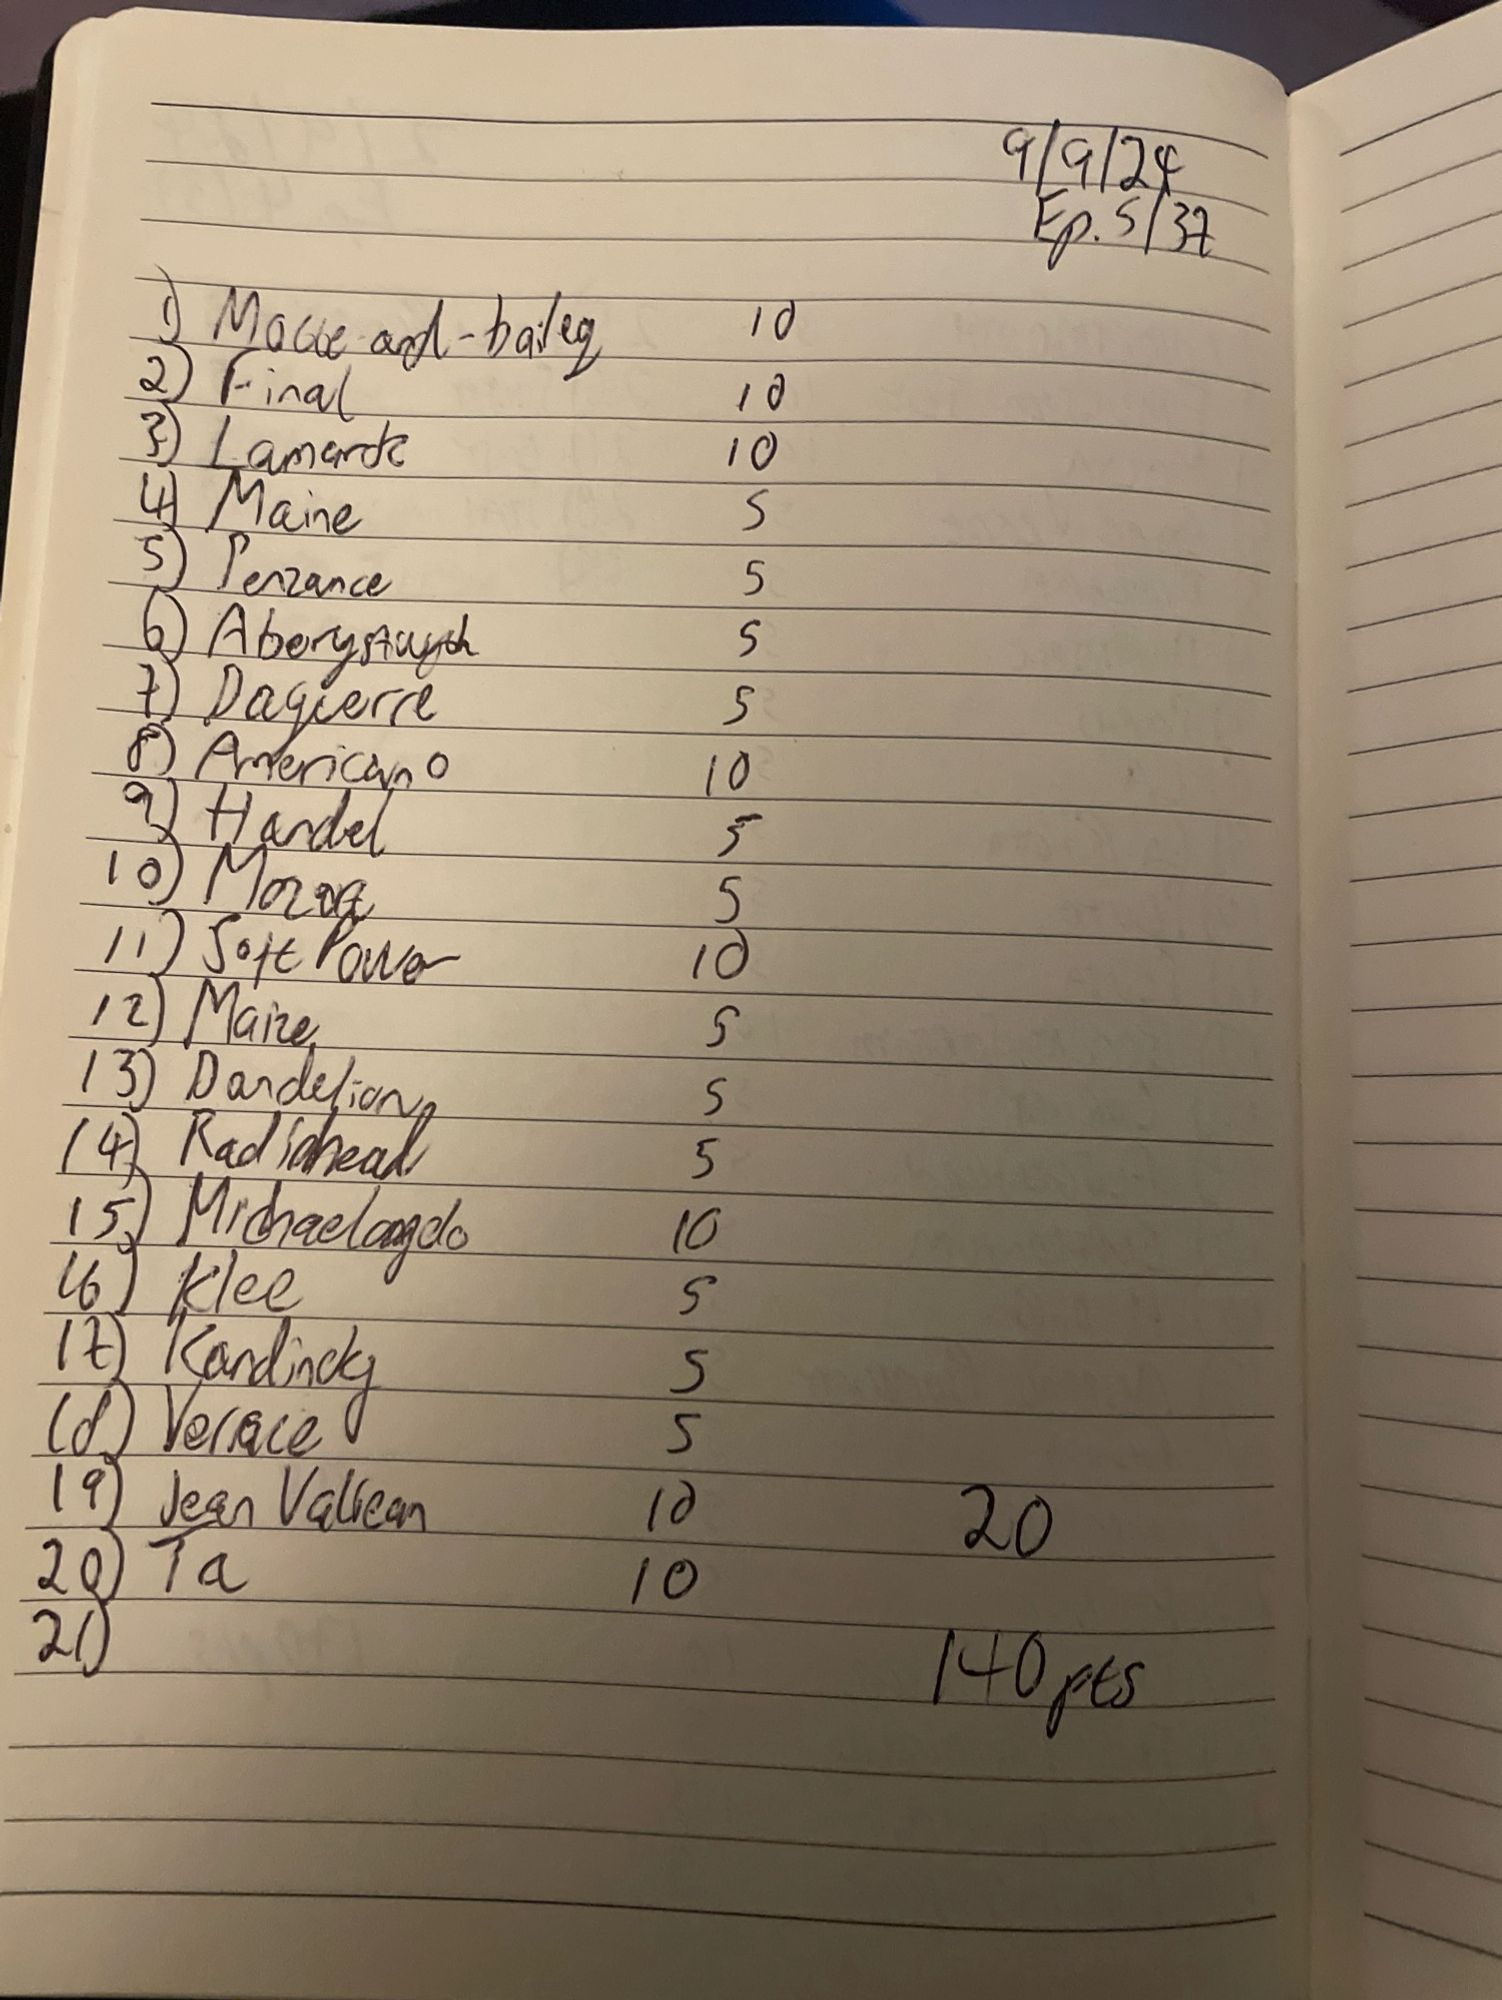 9/9/24
Ep. 5/37
1) Motte-and-bailey 10
2) Final 10
3) Lamarck 10
4) Maine 5
5) Penzance 5
6) Aberystwyth 5
7) Daguerre 5
8) Americano 10
9) Handel 5
10) 5
11) Soft Power 10
12) Maize 5
13) Dandelion 5
14) Radiohead 5
15) Michaelangelo 10
16) Klee 5
17) Kandinsky 5
18) Versace 5
19) Jean Valjean 10 20
20) Ta 10
21)
140pts